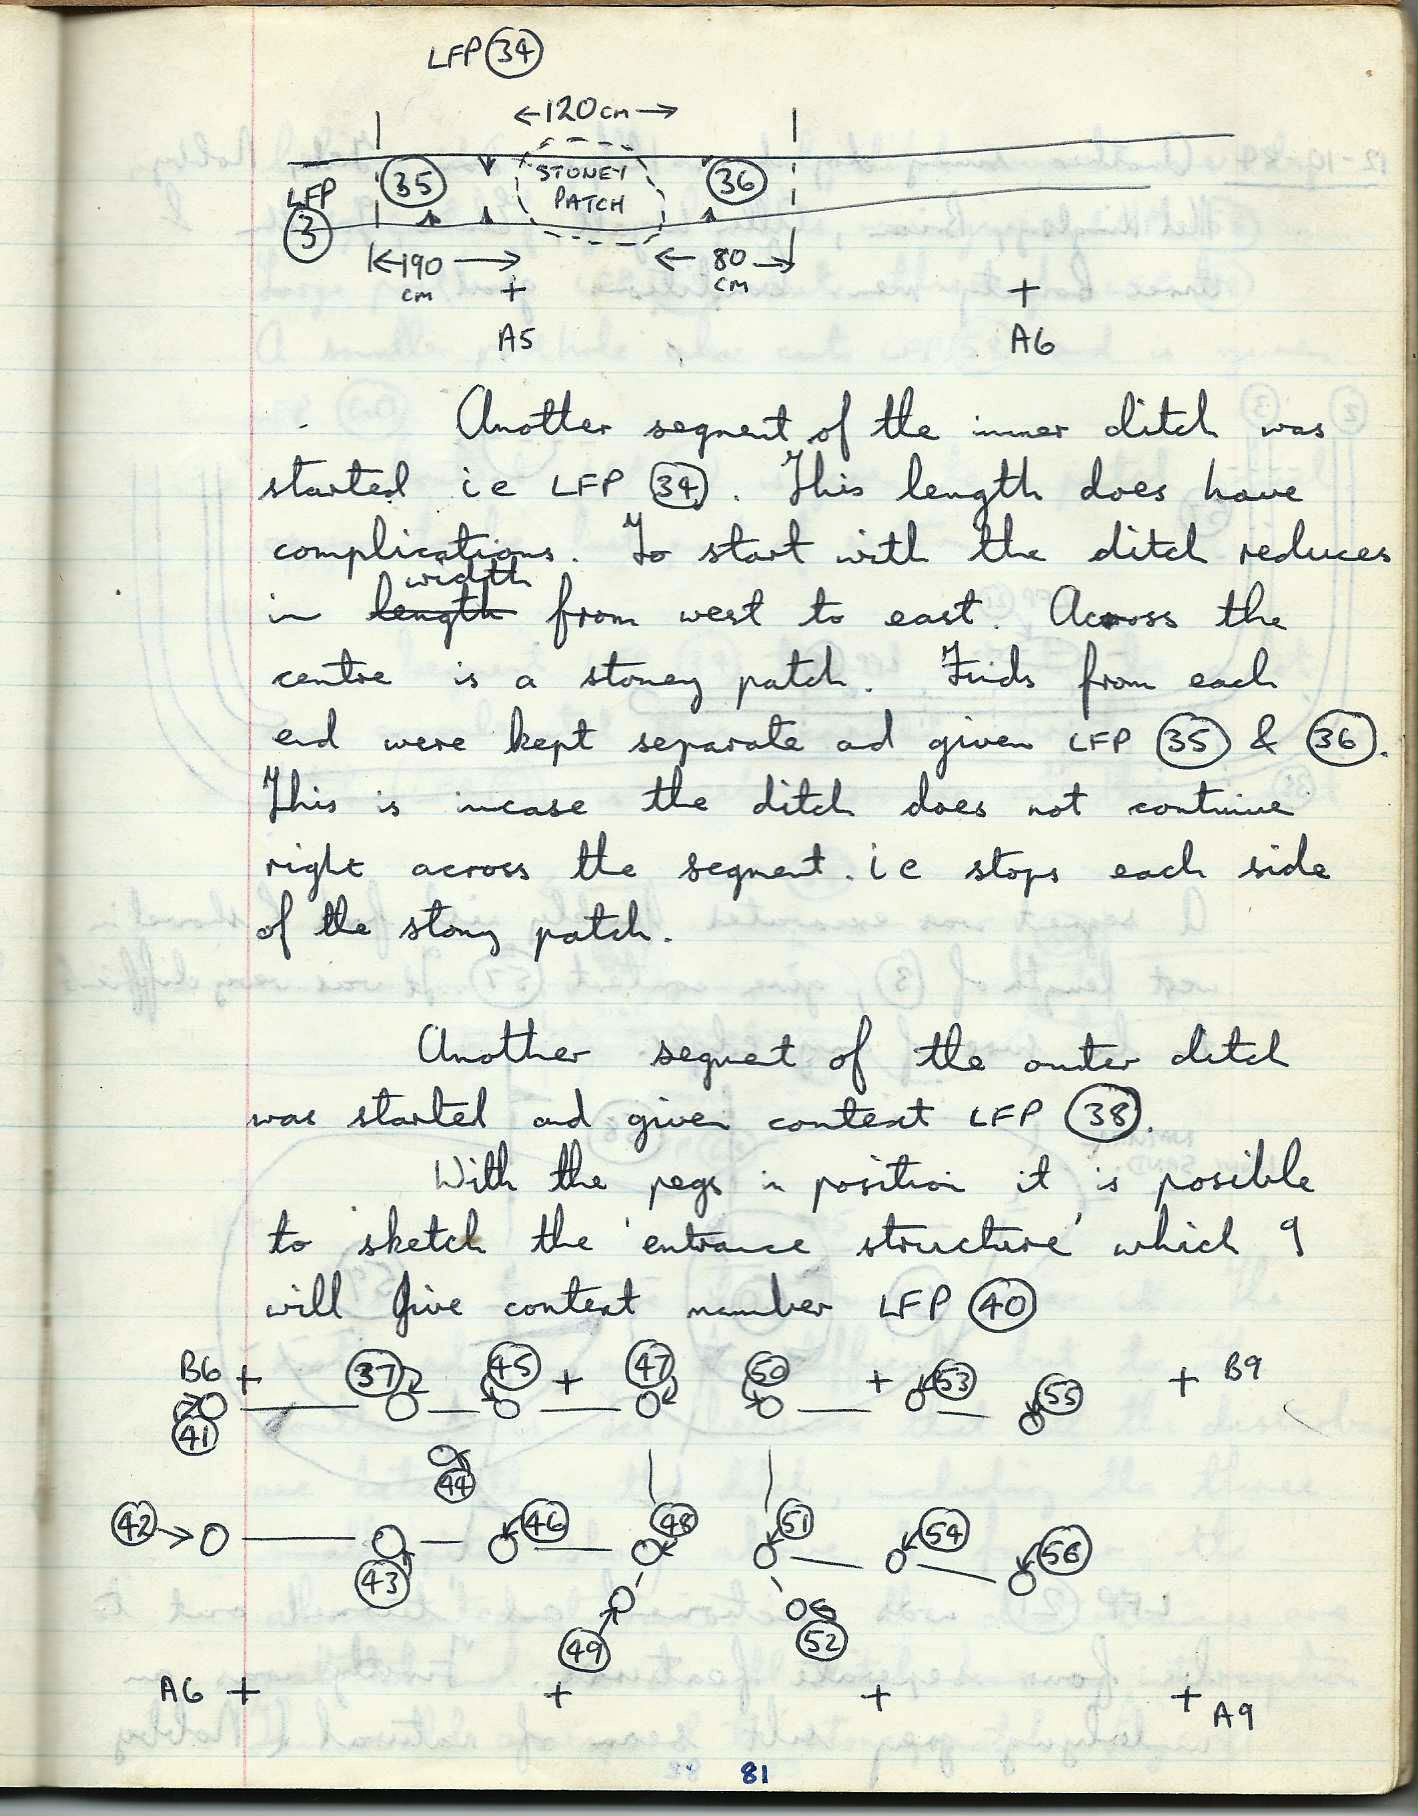 LFP 34
120cm
LFP 35 STONEY 36
3 PATCH
190 80
cm cm
A5 A6
Another segment of the inner ditch was
started ie LFP 34. This length does have
complications. To start with the ditch reduces
width
in length from west to east. Across the
centre is a stoney patch. Finds from each
end were kept separate ad given LFP 35 & 36.
This is incase the ditch does not continue
right across the segment. ie stops each side
of the stony patch.
Another segment of the outer ditch
was started and given context LFP 38.
With the pegs in position it is posible
to sketch the 'entrance structure' which I
will give context number LFP 40
B6 37 45 47 50 53 55 B9
41
44
42 46 48 51 54 56
43
49 52
A6 A9
81